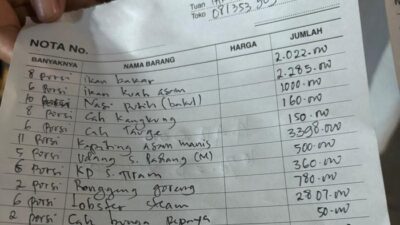 Tuan
Toko 081353
NOTA No.
BANYAKNYA NAMA BARANG HARGA JUMLAH
8 porsi ikan bakar 2.022.000
6 porsi ikan kuah asam 2.285.000
10 Nasi putih (bakul) 1000.000
8 porsi Cah Kangkung 160.000
6 porsi Cah Tauge 150.000
11 porsi Kepiting Asam manis 3398.000
5 porsi Udang S. Padang (M) 500.000
6 porsi KP S. Tiram 360.000
2 porsi goreng 780.000
6 porsi Lobster steam 2807.000
2 porsi Cah bunga Pepaya 50.000